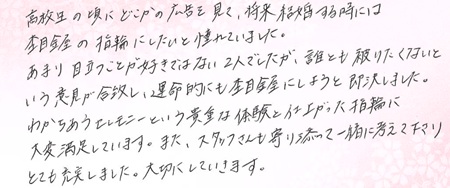 高校生の頃にどこかの広告を見て、将来結婚する時には
杢目金屋の指輪にしたいと憧れていました。
あまり目立つことが好きではない2人でしたが、誰とも被りたくないと
いう意見が合致し、運命的にも杢目金屋にしようと即決しました。
わかちあうセレモニーという貴重な体験と仕上がった指輪に
大変満足しています。また、スタッフさんも寄り添って一緒に考えて下さり
とても充実しました。大切にしていきます。